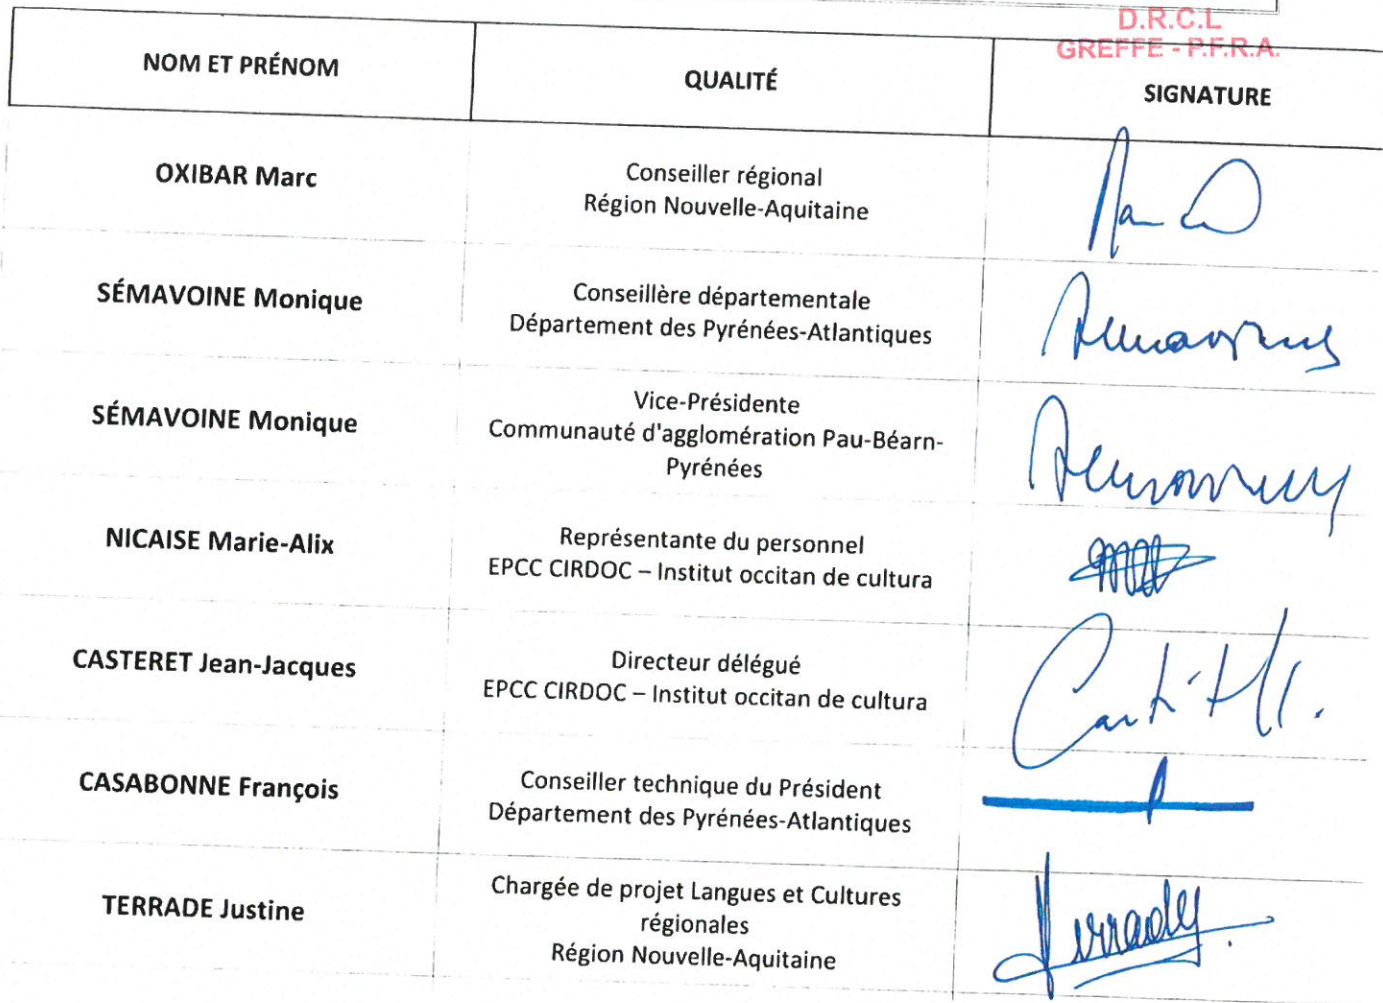 D.R.C.L
GREFFE - P.F.R.A.
NOM ET PRÉNOM
QUALITÉ
SIGNATURE
OXIBAR Marc
Conseiller régional
Région Nouvelle-Aquitaine
SÉMAVOINE Monique
Conseillère départementale
Département des Pyrénées-Atlantiques
SÉMAVOINE Monique
Vice-Présidente
Communauté d'agglomération Pau-Béarn-
Pyrénées
NICAISE Marie-Alix
Représentante du personnel
EPCC CIRDOC – Institut occitan de cultura
CASTERET Jean-Jacques
Directeur délégué
EPCC CIRDOC – Institut occitan de cultura
CASABONNE François
Conseiller technique du Président
Département des Pyrénées-Atlantiques
TERRADE Justine
Chargée de projet Langues et Cultures
régionales
Région Nouvelle-Aquitaine